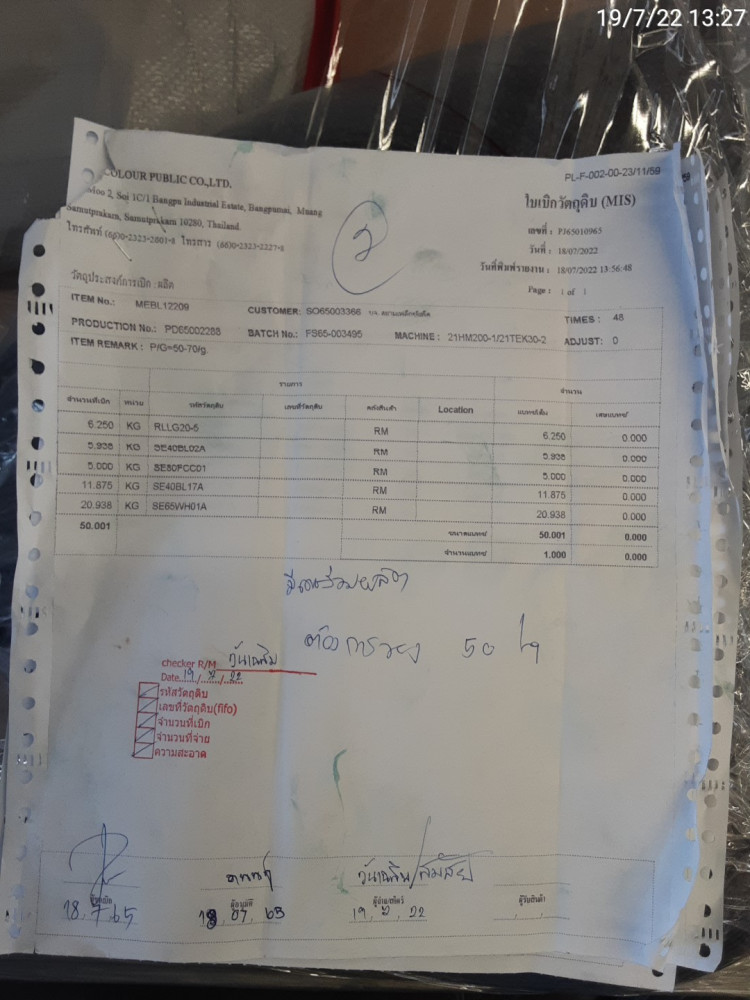 19/7/22 13:27
PL-F-002-00-23/11/59
COLOUR PUBLIC CO.,LTD.
Moo 2, Soi 1C/1 Bangpu Industrial Estate, Bangpumai, Muang
Samutprakarn, Samutprakarn 10280, Thailand.
โทรศัพท์ (66)0-2323-2601-8 โทรสาร (66)0-2323-2227-8
2
ใบเบิกวัตถุดิบ (MIS)
เลขที่ : PJ65010965
วันที่ : 18/07/2022
วันที่พิมพ์รายงาน : 18/07/2022 13:56:48
Page : 1 of 1
วัตถุประสงค์การเบิก : ผลิต
ITEM No.: MEBL12209 CUSTOMER: SO65003366 TIMES : 48
PRODUCTION No.: PD65002288 BATCH No.: FS65-003495 MACHINE : 21HM200-1/21TEK30-2 ADJUST: 0
ITEM REMARK : P/G=50-70/g.
รายการ จำนวน
จำนวนที่เบิก หน่วย รหัสวัตถุดิบ เลขที่วัตถุดิบ คลังสินค้า Location แบทช์เต็ม เศษแบทช์
6.250 KG RLLG20-5 RM 6.250 0.000
5.938 KG SE40BL02A RM 5.938 0.000
5.000 KG SE80FCC01 RM 5.000 0.000
11.875 KG SE40BL17A RM 11.875 0.000
20.938 KG SE65WH01A RM 20.938 0.000
50.001 ขนาดแบทช์ 50.001 0.000
จำนวนแบทช์ 1.000 0.000
ต้องการ 50 ใบ
checker R/M วันเฉลิม
Date 19 / 7 / 22
รหัสวัตถุดิบ
เลขที่วัตถุดิบ(fifo)
จำนวนที่เบิก
จำนวนที่จ่าย
ความสะอาด
วันเฉลิม/สมสัย
ผู้อนุมัติ ผู้รับสินค้า
18.7.65 18.07.65 19.7.22